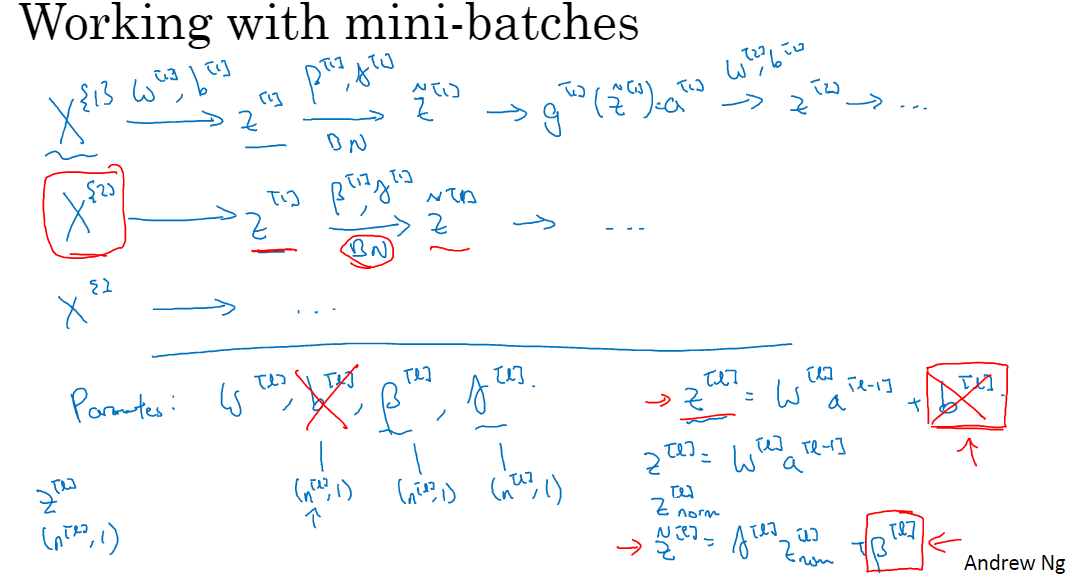 Working with mini-batches
X^{1} W^[1], b^[1] → z^[1] β^[1], γ^[1] → BN z̃^[1] → g^[1](z̃^[1]) = a^[1] W^[2], b^[2] → z^[2] → ...
X^{2} → z^[1] β^[1], γ^[1] → BN z̃^[1] → ...
X^{3} → ...
Parameters: W^[l], b^[l], β^[l], γ^[l].
→ z^[l] = W^[l] a^[l-1] + b^[l].
z^[l] = W^[l] a^[l-1]
z^[l]
(n^[l], 1)
(n^[l], 1) (n^[l], 1) (n^[l], 1)
z^[l]norm
→ z̃^[l] = γ^[l] z^[l]norm + β^[l] ←
Andrew Ng